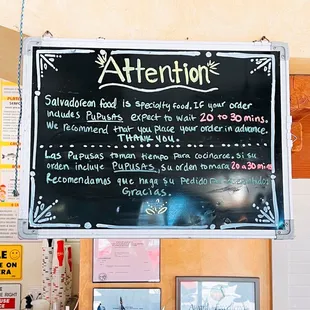 Attention
Salvadorean food is specialty food. If your order
includes PUPUSAS expect to wait 20 to 30 mins.
We recommend that you place your order in advance.
THANK YOU.
Las Pupusas toman tiempo para cocinarce. Si su
orden incluye PUPUSAS, su orden tomara 20 a 30 min
Recomendamos que haga su Pedido
Gracias.